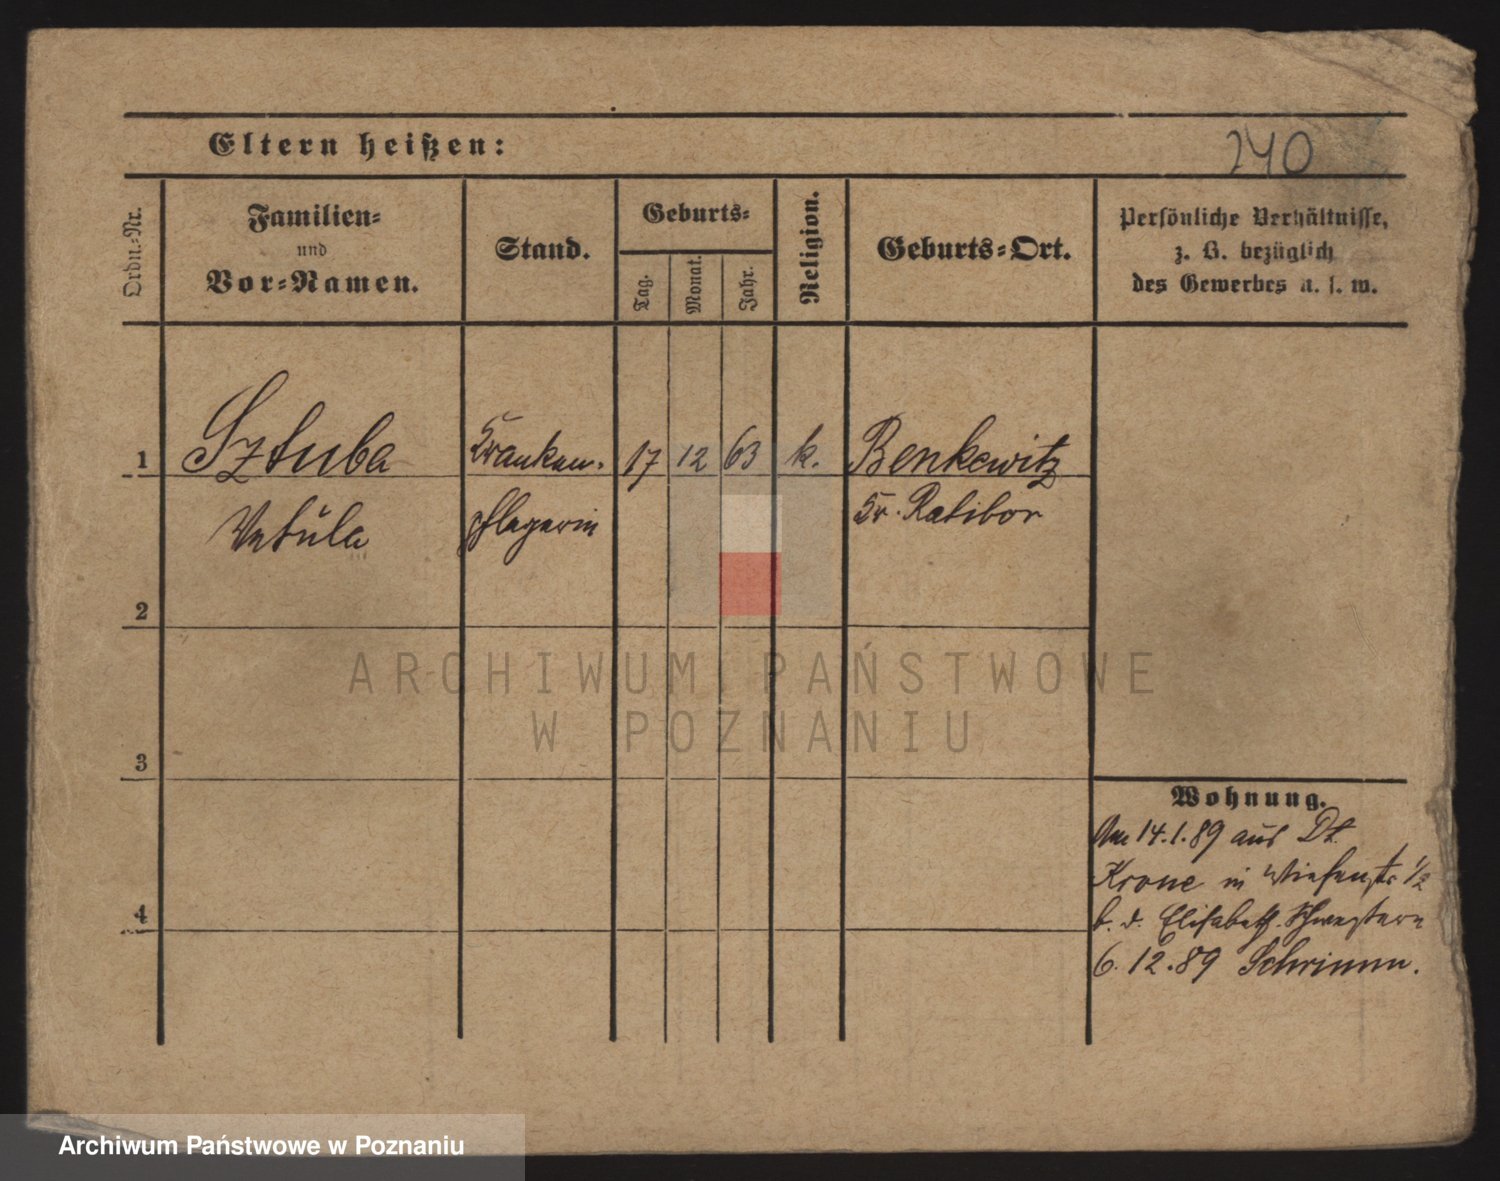 240
Eltern heißen:
Ordn.-Nr.
Familien-
und
Vor-Namen.
Stand.
Geburts-
Tag.
Monat.
Jahr.
Religion.
Geburts-Ort.
Persönliche Verhältnisse,
z. B. bezüglich
des Gewerbes u. s. w.
1 Sztuba Kranken- 17 12 63 k. Benkowitz
Vetula pflegerin Kr. Ratibor
2
3
4
Wohnung.
Am 14.1.89 aus Dt.
Krone in Wiesenstr 1/2
b. d. Elisabeth. Schwestern
6.12.89 Schrimm.
ARCHIWUM PAŃSTWOWE
W POZNANIU
Archiwum Państwowe w Poznaniu